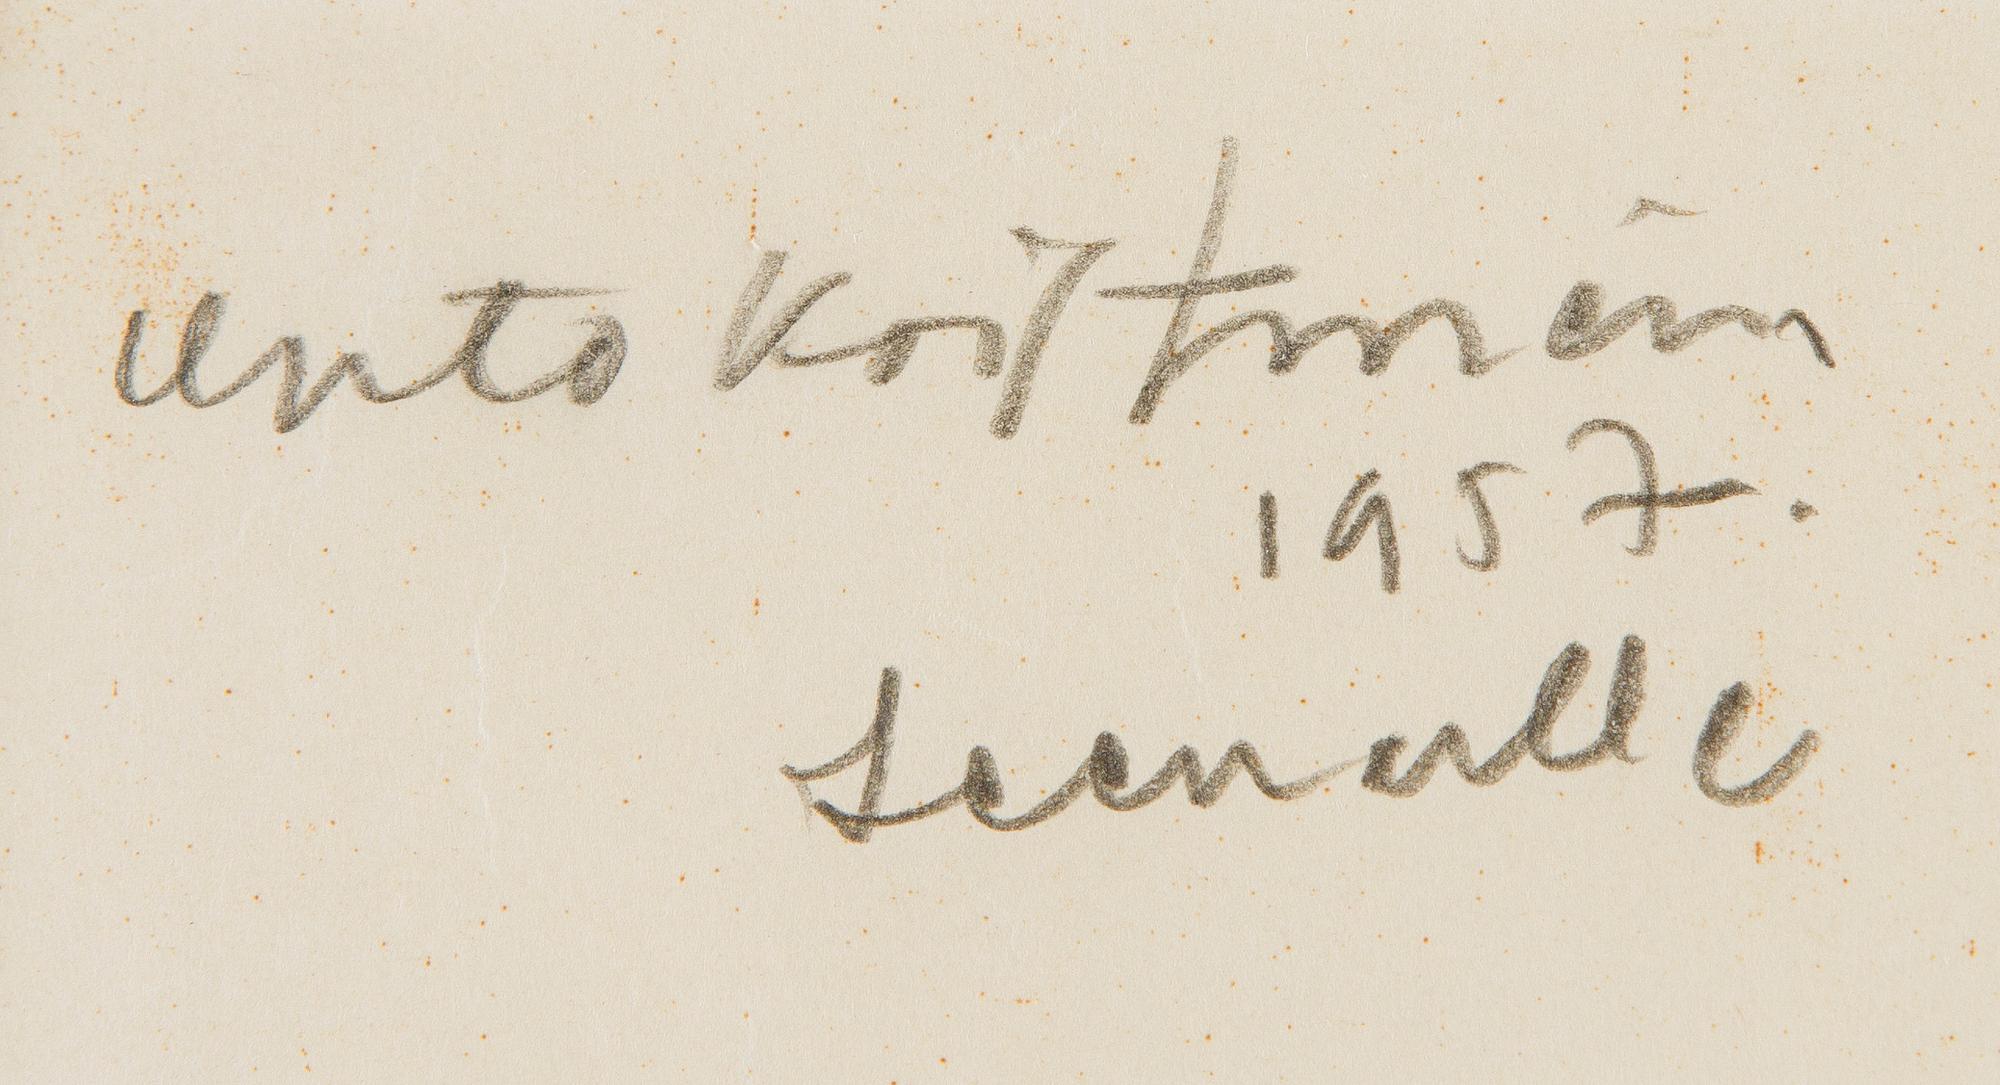 Unto Koistinen
1957.
Leenalle